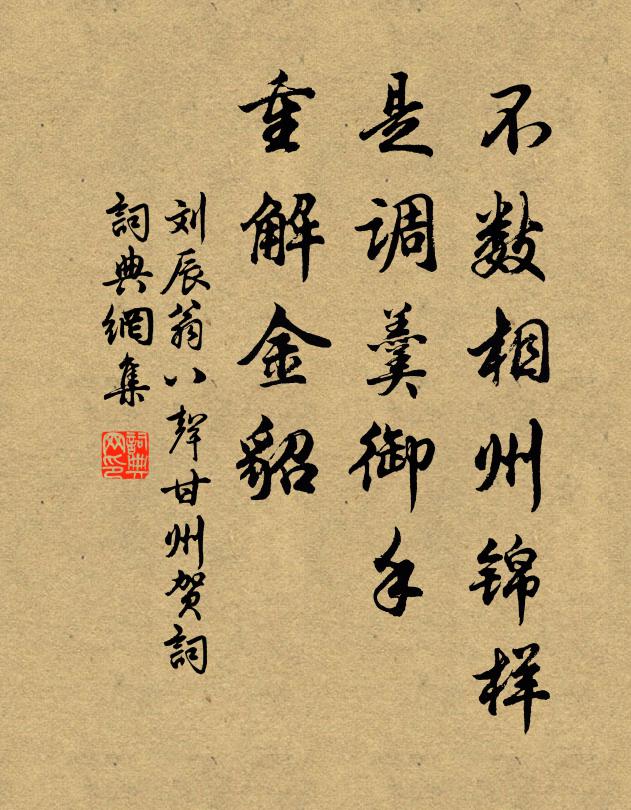 不数相州锦样
是调羹御手
重解金貂
刘辰翁八声甘州贺詞
詞典網集
詞典网印